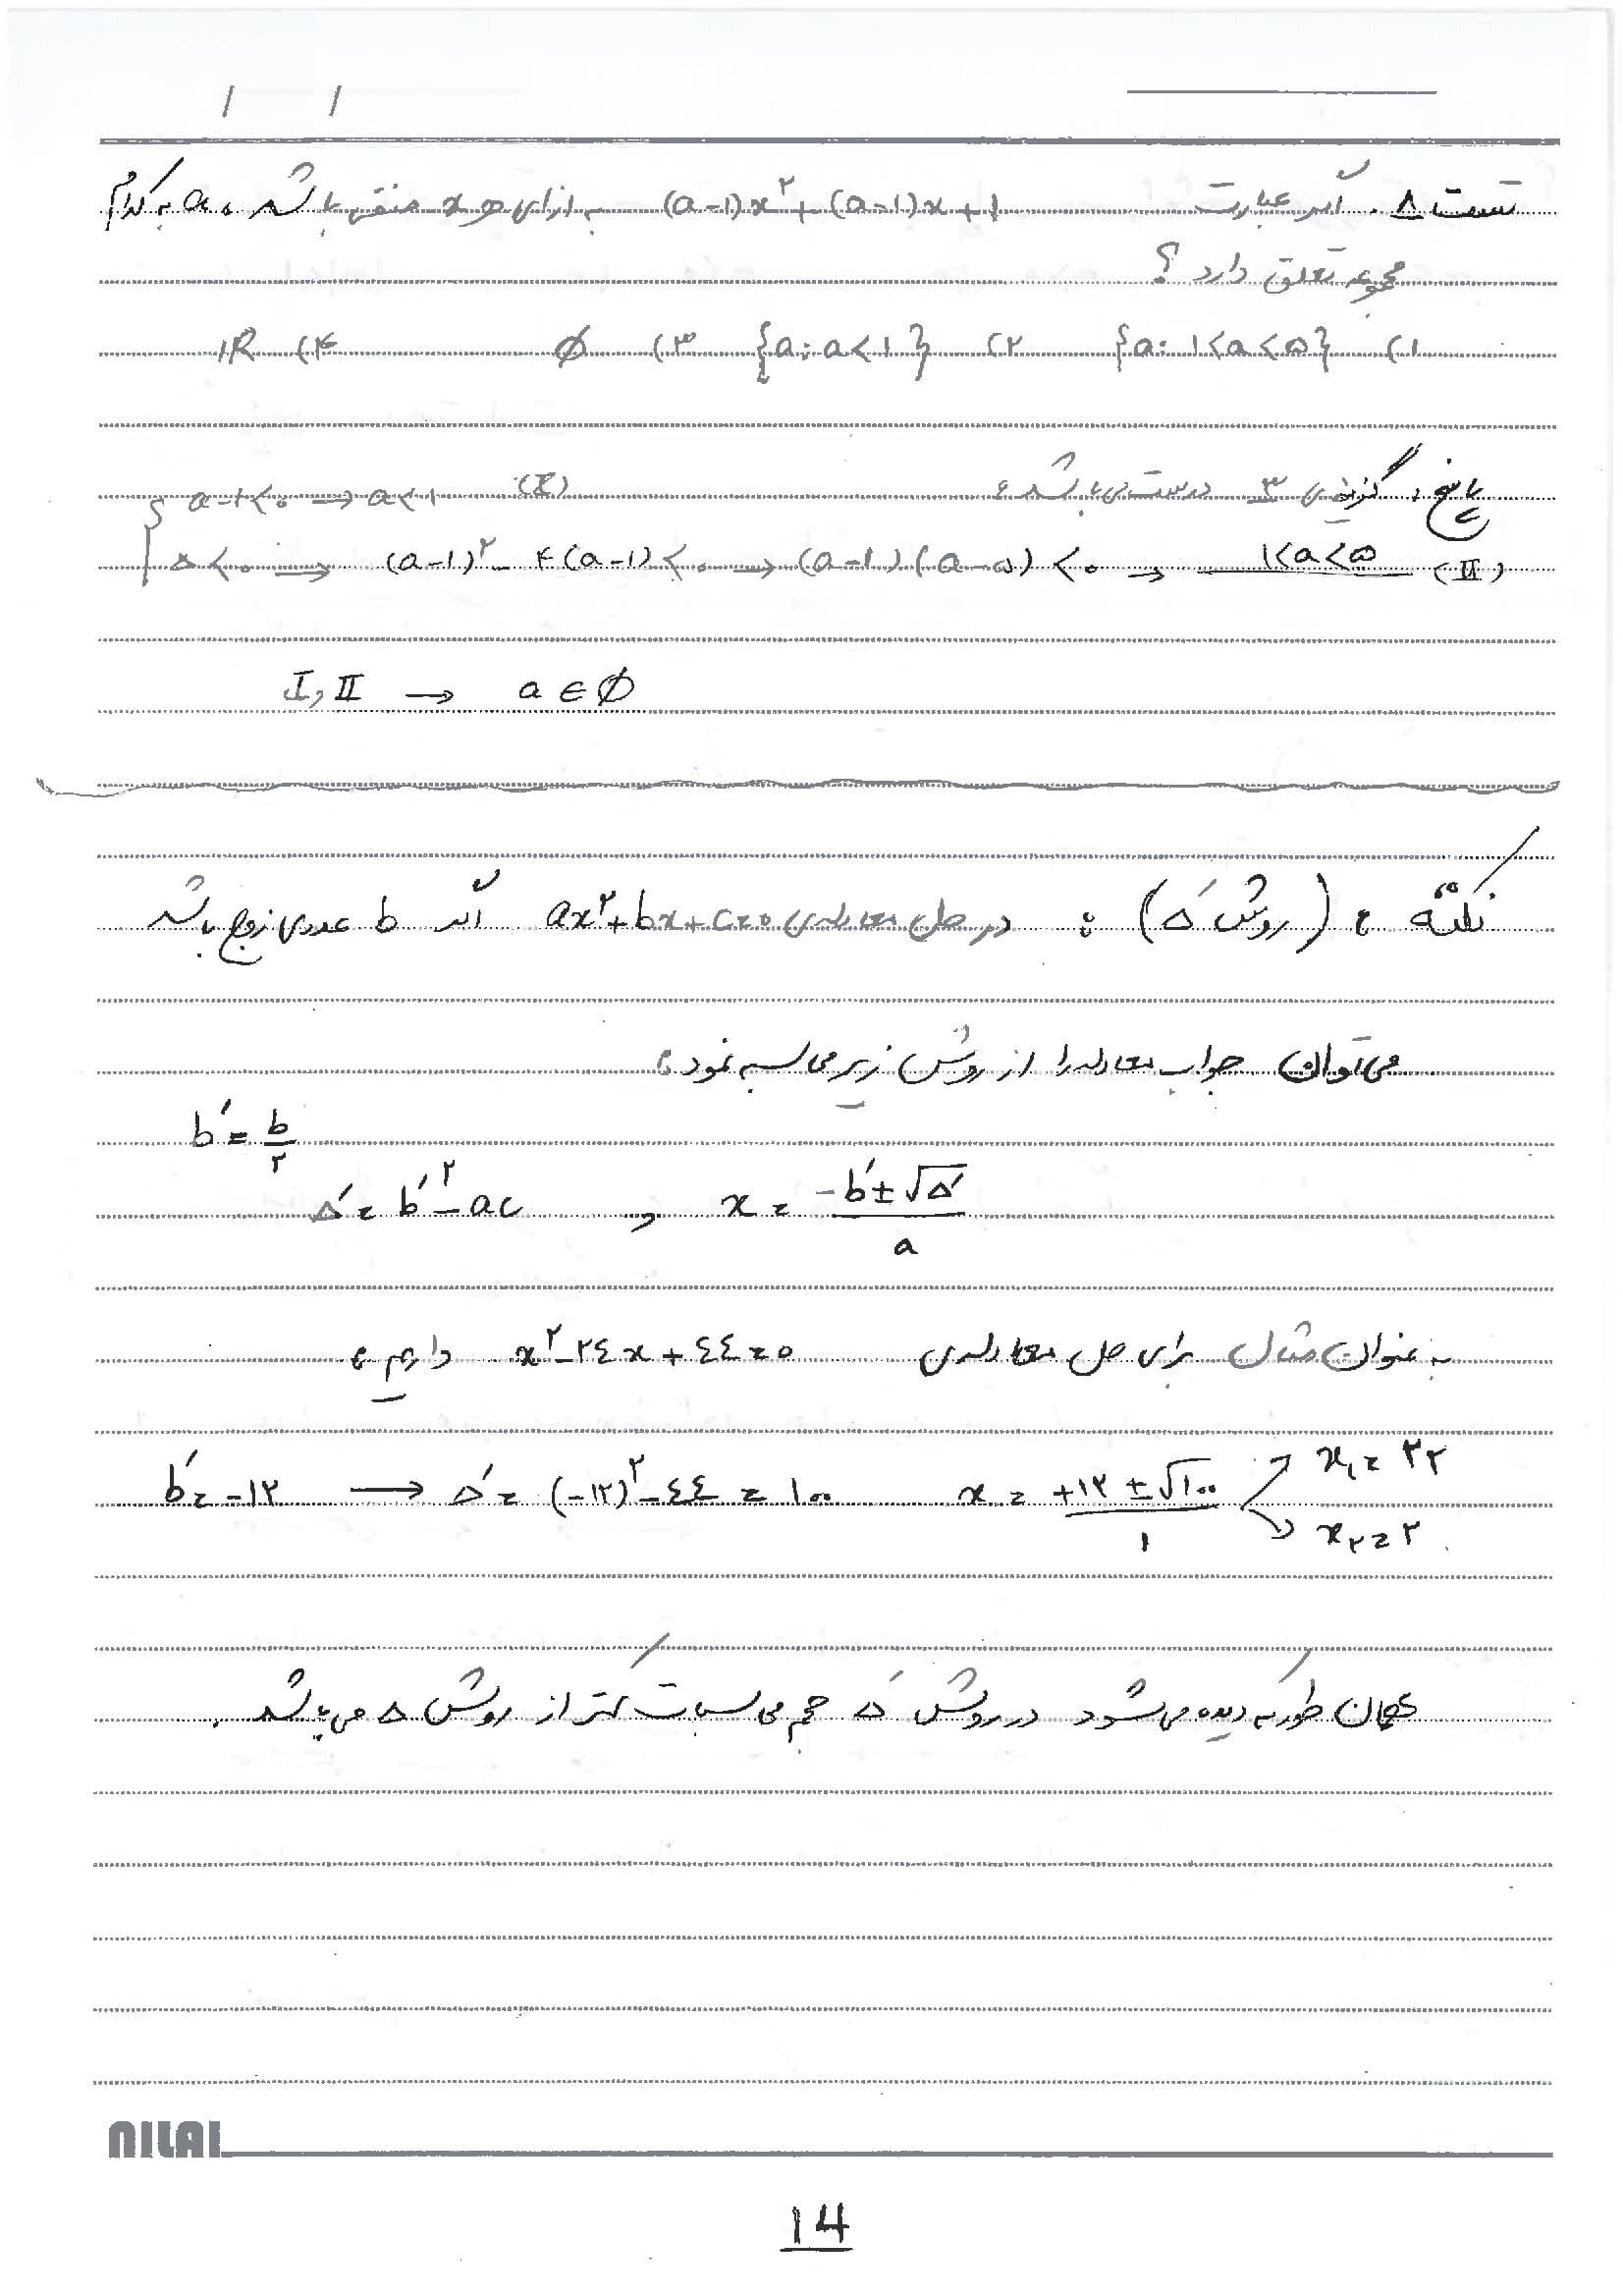 / /
تست ۸. اگر عبارت (a-1)x^۲+(a-1)x+1 به ازای هر x منفی باشد، a به کدام
مجموعه تعلق دارد؟
۱) {a: 1<a<۵} ۲) {a: a<1} ۳) ∅ ۴) IR
پاسخ: گزینه‌ی ۳ درست می‌باشد:
{ a-1<۰ → a<1 (I)
Δ<۰ → (a-1)^۲-۴(a-1)<۰ → (a-1)(a-۵)<۰ → 1<a<۵ (II)
I, II → a∈∅
نکته: (روش Δ'): در حل معادله‌ی ax^۲+bx+c=۰ اگر b عددی زوج باشد
می‌توان جواب معادله را از روش زیر محاسبه نمود:
b'=b/۲
Δ'=b'^۲-ac , x=(-b'±√Δ')/a
به عنوان مثال برای حل معادله‌ی x^۲-۲٤x+٤٤=۰ داریم:
b'=-۱۲ → Δ'=(-۱۲)^۲-٤٤=۱۰۰ x=(+۱۲±√۱۰۰)/۱ x₁=۲۲
x₂=۲
همان طور که دیده می‌شود در روش Δ' حجم محاسبات کمتر از روش Δ می‌باشد.
NILAI
14